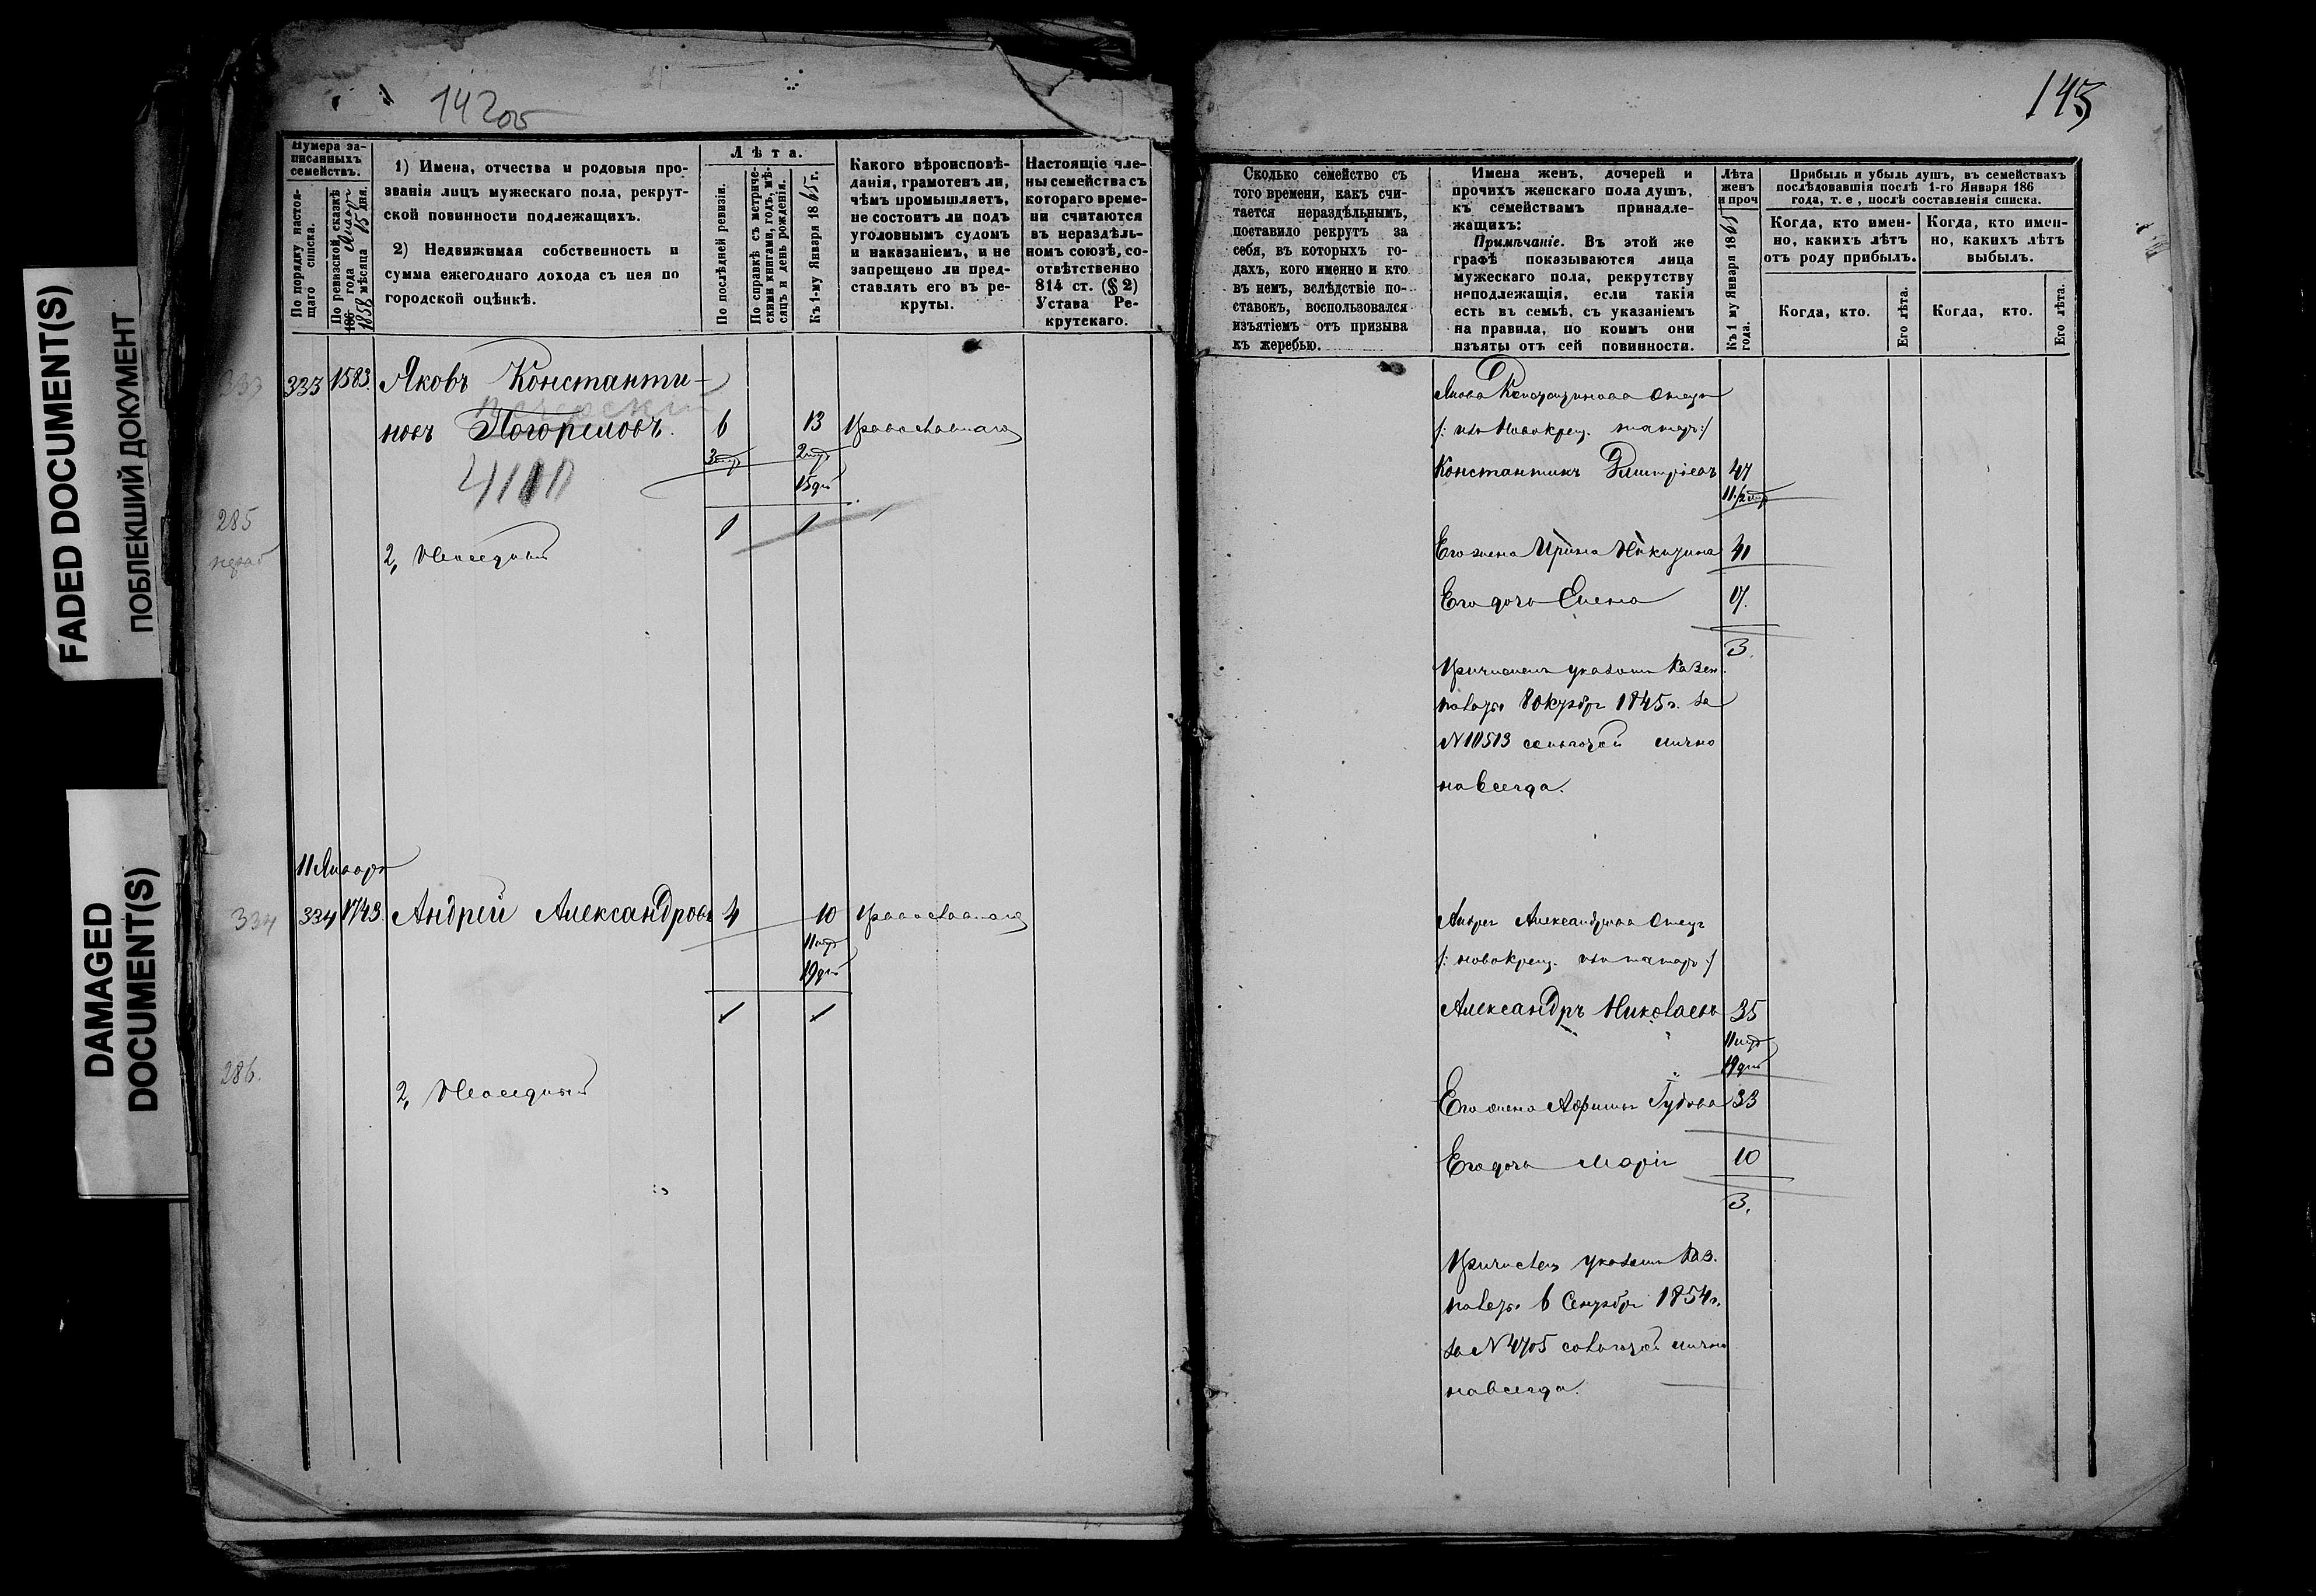 142об
143
FADED DOCUMENT(S)
ПОБЛЕКШИЙ ДОКУМЕНТ
DAMAGED
DOCUMENT(S)
Нумера за-
писанныхъ
семействъ.
По порядку настоя-
щаго списка.
По ревизской сказкѣ
186 года
1858 мѣсяца 15 дня.
1) Имена, отчества и родовыя про-
званія лицъ мужескаго пола, рекрут-
ской повинности подлежащихъ.
2) Недвижимая собственность и
сумма ежегоднаго дохода съ нея по
городской оцѣнкѣ.
Лѣта.
По послѣдней ревизіи.
По справкѣ съ метриче-
скими книгами, годъ, мѣ-
сяцъ и день рожденія.
Къ 1-му Января 1865 г.
Какого вѣроисповѣ-
данія, грамотенъ ли,
чѣмъ промышляетъ,
не состоитъ ли подъ
уголовнымъ судомъ
и наказаніемъ, и не
запрещено ли пред-
ставлять его въ ре-
круты.
Настоящіе чле-
ны семейства съ
котораго време-
ни считаются
въ нераздѣль-
номъ союзѣ, со-
отвѣтственно
814 ст. (§ 2)
Устава Ре-
крутскаго.
Сколько семейство съ
того времени, какъ счи-
тается нераздѣльнымъ,
поставило рекрутъ за
себя, въ которыхъ го-
дахъ, кого именно и кто
въ немъ, вслѣдствіе по-
ставокъ, воспользовался
изъятіемъ отъ призыва
къ жеребью.
Имена женъ, дочерей и
прочихъ женскаго пола душъ,
къ семействамъ принадле-
жащихъ:
Примѣчаніе. Въ этой же
графѣ показываются лица
мужескаго пола, рекрутству
неподлежащія, если такія
есть въ семьѣ, съ указаніемъ
на правила, по коимъ они
изъяты отъ сей повинности.
Лѣта
женъ
и проч
Къ 1 му Января 1865
года.
Прибыль и убыль душъ, въ семействахъ
послѣдовавшія послѣ 1-го Января 186
года, т. е, послѣ составленія списка.
Когда, кто имен-
но, какихъ лѣтъ
отъ роду прибылъ.
Когда, кто имен-
но, какихъ лѣтъ
выбылъ.
Когда, кто.
Его лѣта.
Когда, кто.
Его лѣта.
333 333 1583. Яковъ Константи-
новъ Погореловъ. 6 13 Православнаго
2 мѣс
15 дн
1 1
285
2, Неимеетъ
Якова Константинова Отецъ
/: изъ Новокрещ. татаръ :/
Константинъ Дмитріевъ 47
Его жена Ирина Никитина 41
Его дочь Елена 17.
3.
Причисленъ указомъ Казен.
палаты 8 Октября 1845 г. за
N 10513 с льготой лично
навсегда.
11 Января
334 334 1743. Андрей Александровъ 4 10 Православнаго
11 мѣс
19 дн
1 1
286.
2, Неимеетъ
Андрея Александрова Отецъ
/: новокрещ. изъ татаръ :/
Александръ Николаевъ 35
11 мѣс
19 дн
Его жена 33
Его дочь Марія 10
3.
Причисленъ указомъ Каз.
палаты 6 Сентября 1854 г.
за N 4705 со льготой лично
навсегда.